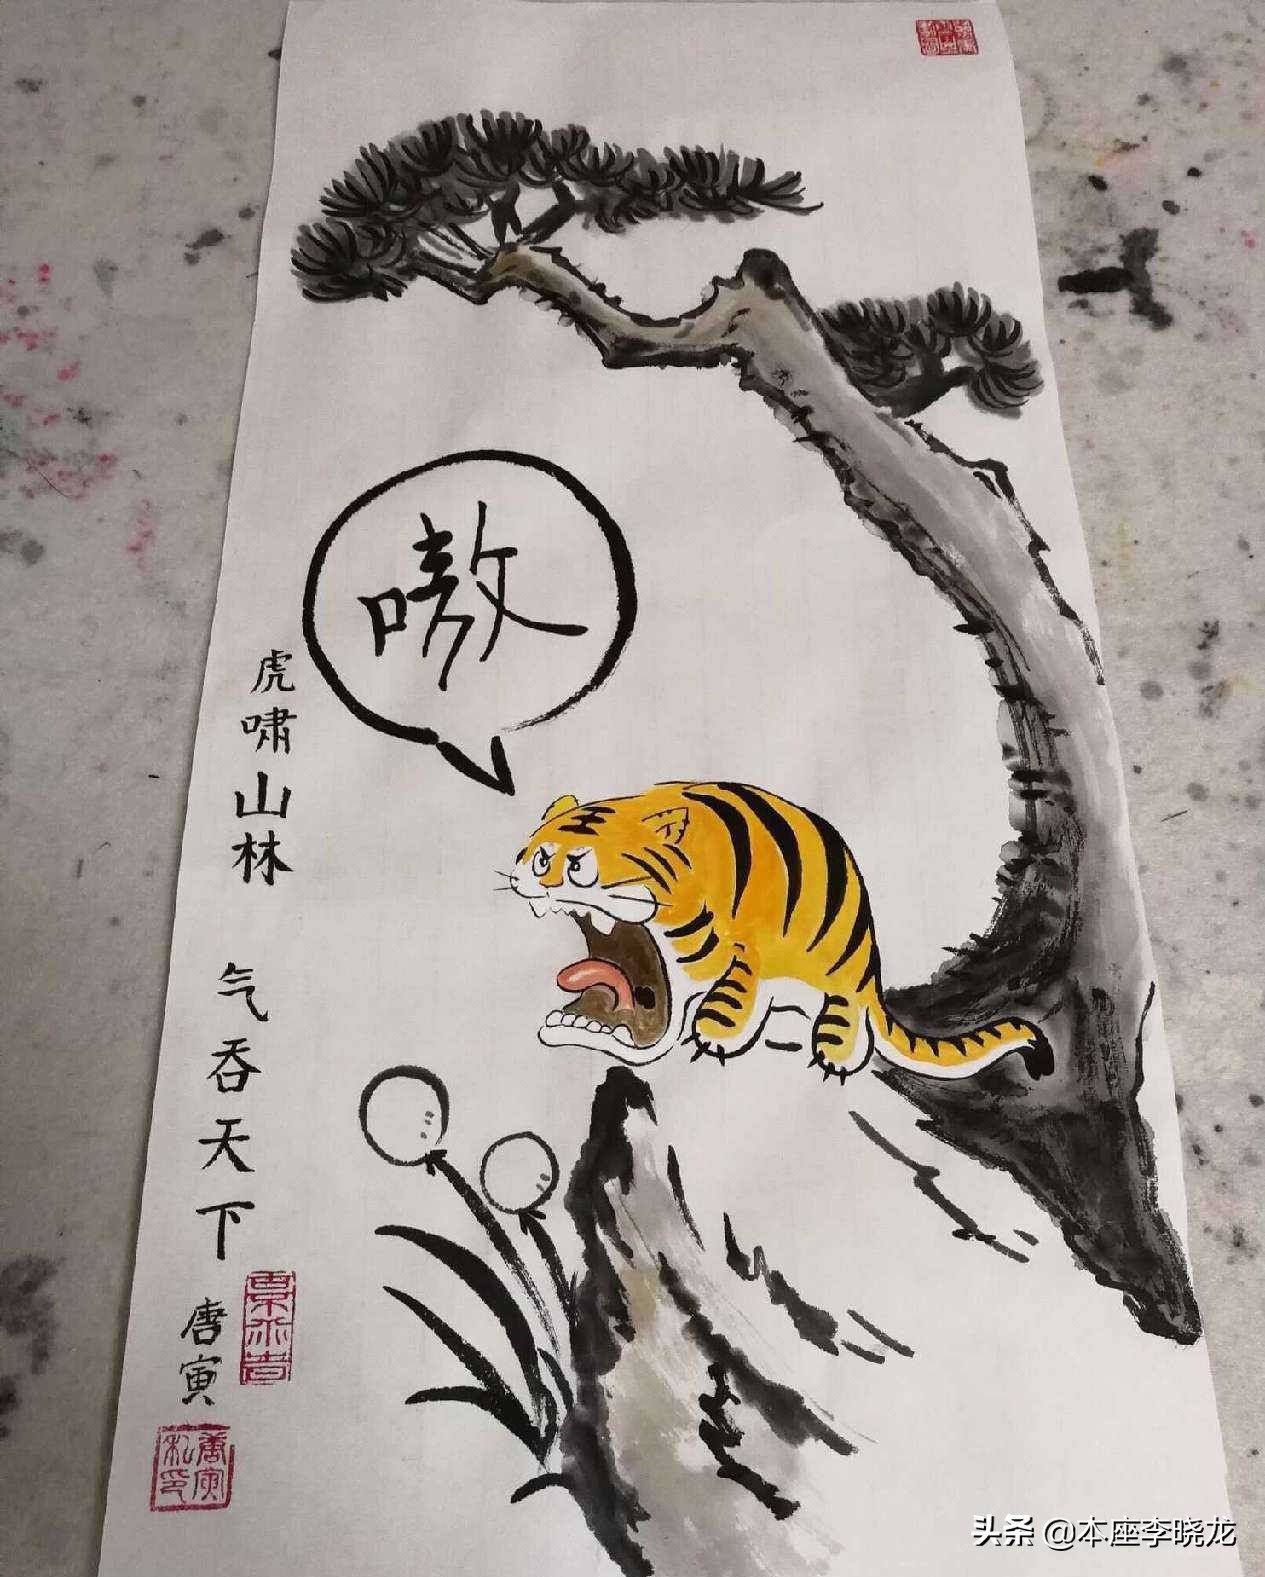 嗷
虎啸山林 气吞天下
唐寅
唐寅私印
头条 @本座李晓龙